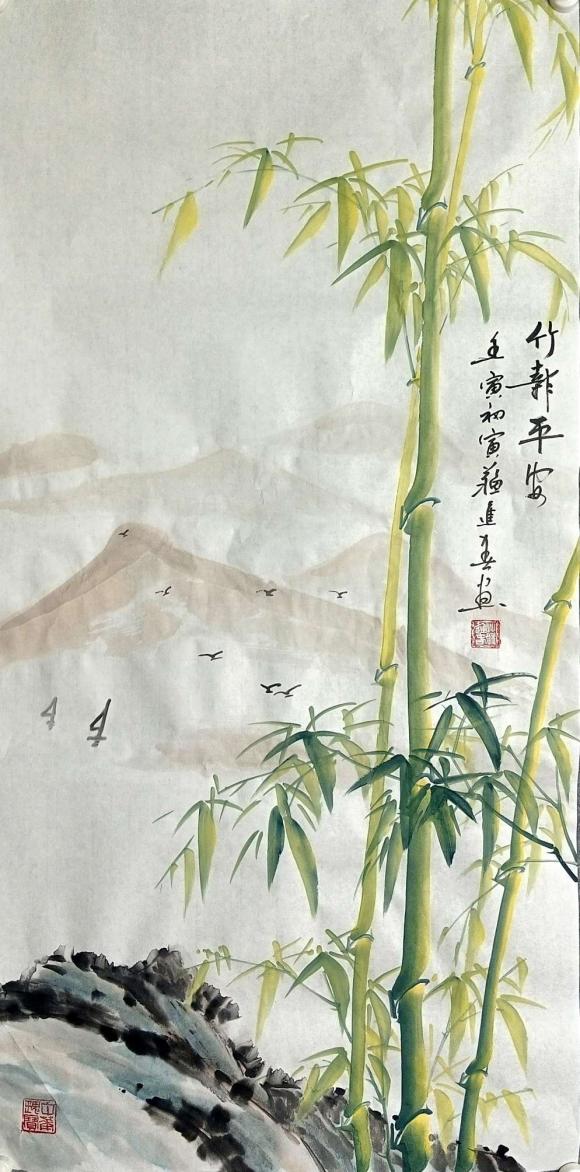 竹報平安
壬寅初寅蘇進春畫